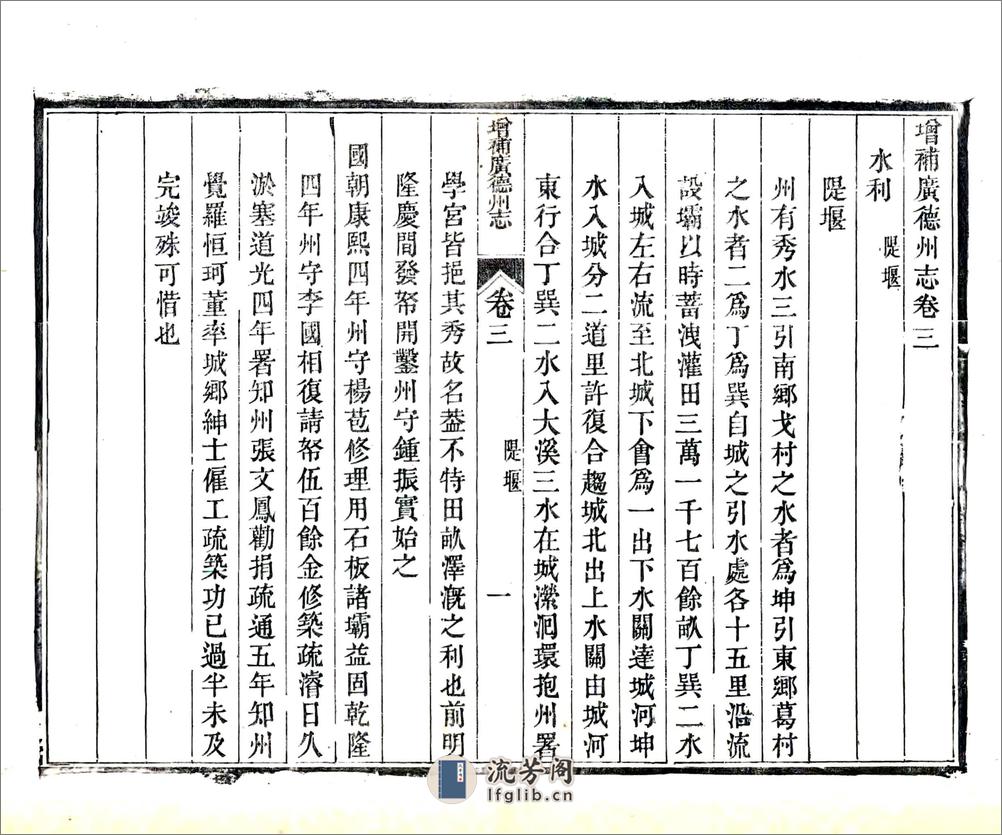 增補廣德州志卷三
水利 隄堰
隄堰
州有秀水三引南鄉戈村之水者爲坤引東鄉葛村
之水者二爲丁爲巽自城之引水處各十五里沿流
設壩以時蓄洩灌田三萬一千七百餘畝丁巽二水
入城左右流至北城下會爲一出下水關達城河坤
水入城分二道里許復合趨城北出上水關由城河
東行合丁巽二水入大溪三水在城瀠洄環抱州署
增補廣德州志 卷三 隄堰 一
學宮皆挹其秀故名葢不特田畝澤溉之利也前明
隆慶間發帑開鑿州守鍾振實始之
國朝康熙四年州守楊苞修理用石板諸壩益固乾隆
四年州守李國相復請帑伍百餘金修築疏濬日久
淤塞道光四年署知州張文鳳勸捐疏通五年知州
覺羅恒珂董率城鄉紳士僱工疏築功已過半未及
完竣殊可惜也
流芳阁
lfglib.cn